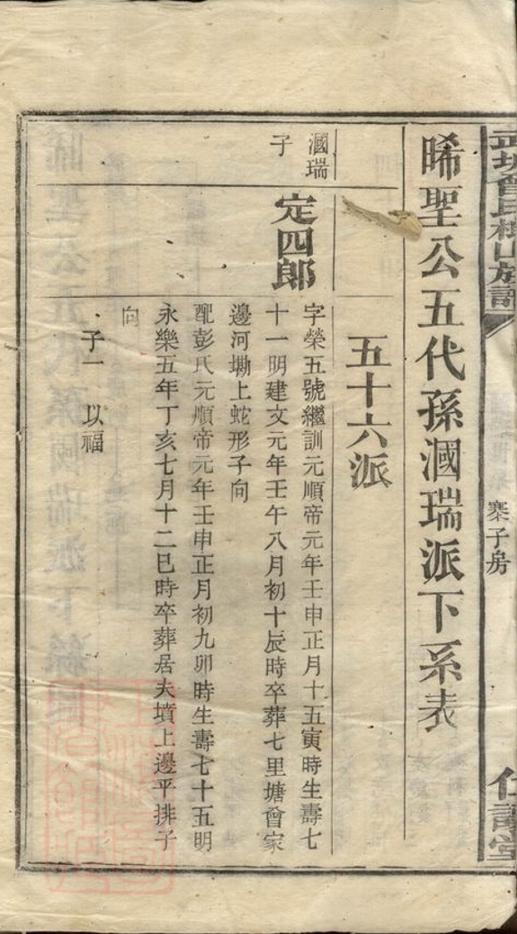 武城曾氏梅山族譜
寀子房
仁讓堂
晞聖公五代孫漍瑞派下系表
五十六派
漍瑞子
定四郎
字榮五號繼訓元順帝元年壬申正月十五寅時生壽七
十一明建文元年壬午八月初十辰時卒葬七里塘曾家
邊河墈上蛇形子向
配彭氏元順帝元年壬申正月初九卯時生壽七十五明
永樂五年丁亥七月十二巳時卒葬居夫墳上邊平排子
向
子一 以福